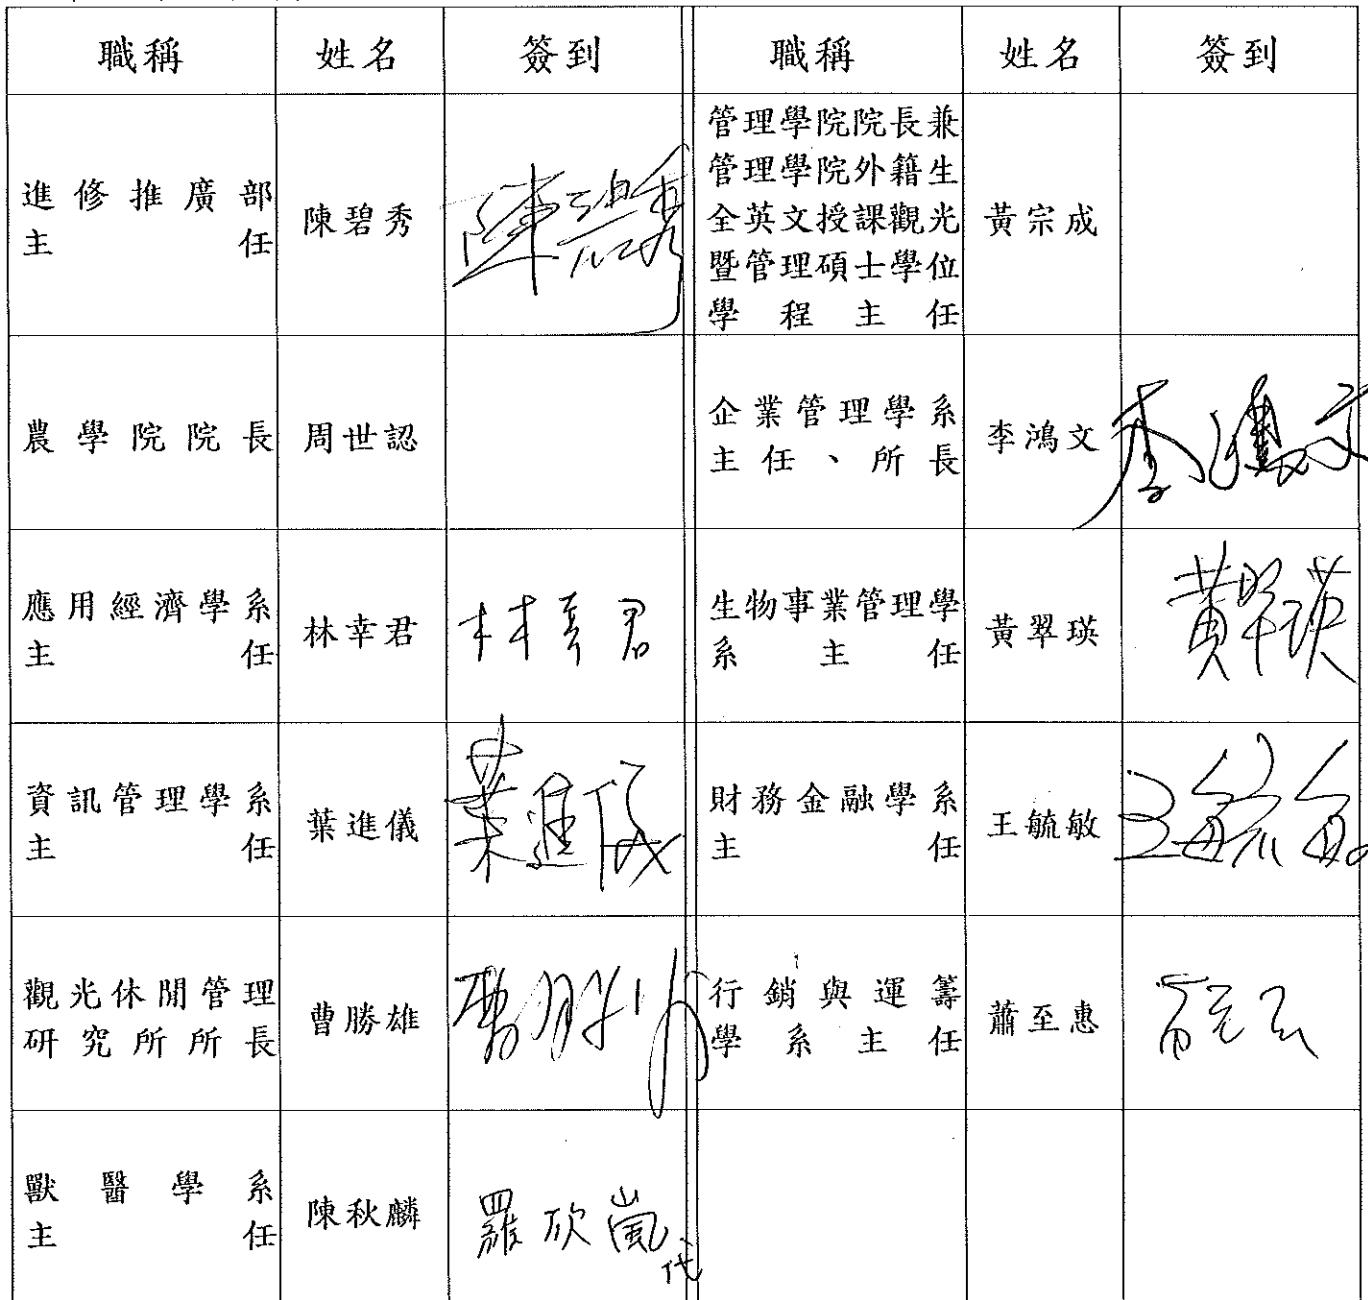 職稱 姓名 簽到 職稱 姓名 簽到
進修推廣部
主任
陳碧秀
陳碧秀
管理學院院長兼
管理學院外籍生
全英文授課觀光
暨管理碩士學位
學程主任
黃宗成
農學院院長
周世認
企業管理學系
主任、所長
李鴻文
李鴻文
應用經濟學系
主任
林幸君
林幸君
生物事業管理學
系主任
黃翠瑛
黃翠瑛
資訊管理學系
主任
葉進儀
葉進儀
財務金融學系
主任
王毓敏
王毓敏
觀光休閒管理
研究所所長
曹勝雄
行銷與運籌
學系主任
蕭至惠
獸醫學系
主任
陳秋麟
羅欣嵐代